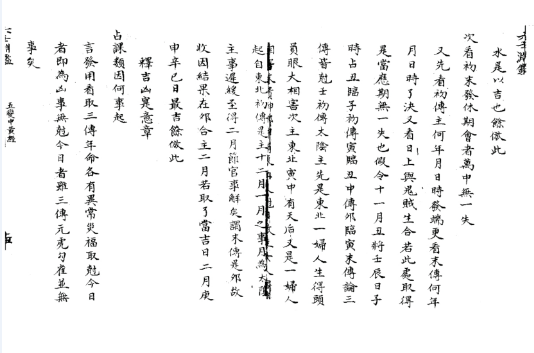 六壬淵鑑
水是以吉也餘倣此
次看初末發休期會者萬中無一失
又先看初傳主何年月日時發端更看末傳何年
月日時了決又看日上與鬼賊生合若此處取得
是當應期無一失也假令十一月丑將壬辰日子
時占丑臨子初傳寅臨丑中傳卯臨寅末傳論三
傳皆剋士初傳太陰主先是東北一婦人生得頭
員眼大相害次主東北寅甲有天后又是一婦人
起自東北初傳是主十二月一月之事月為太陰
主事遲緩至得二月節官事解矣謂末傳是卯故
收因結果在卯合主二月若取了當吉日二月庚
申辛巳日最吉餘倣此
釋吉凶冕意章
占課類因何事起
言發用看取三傳年命各有異常災福取剋今日
者即為凶事無剋今日者雖三傳元虎勾雀並無
事矣
五變中黃經